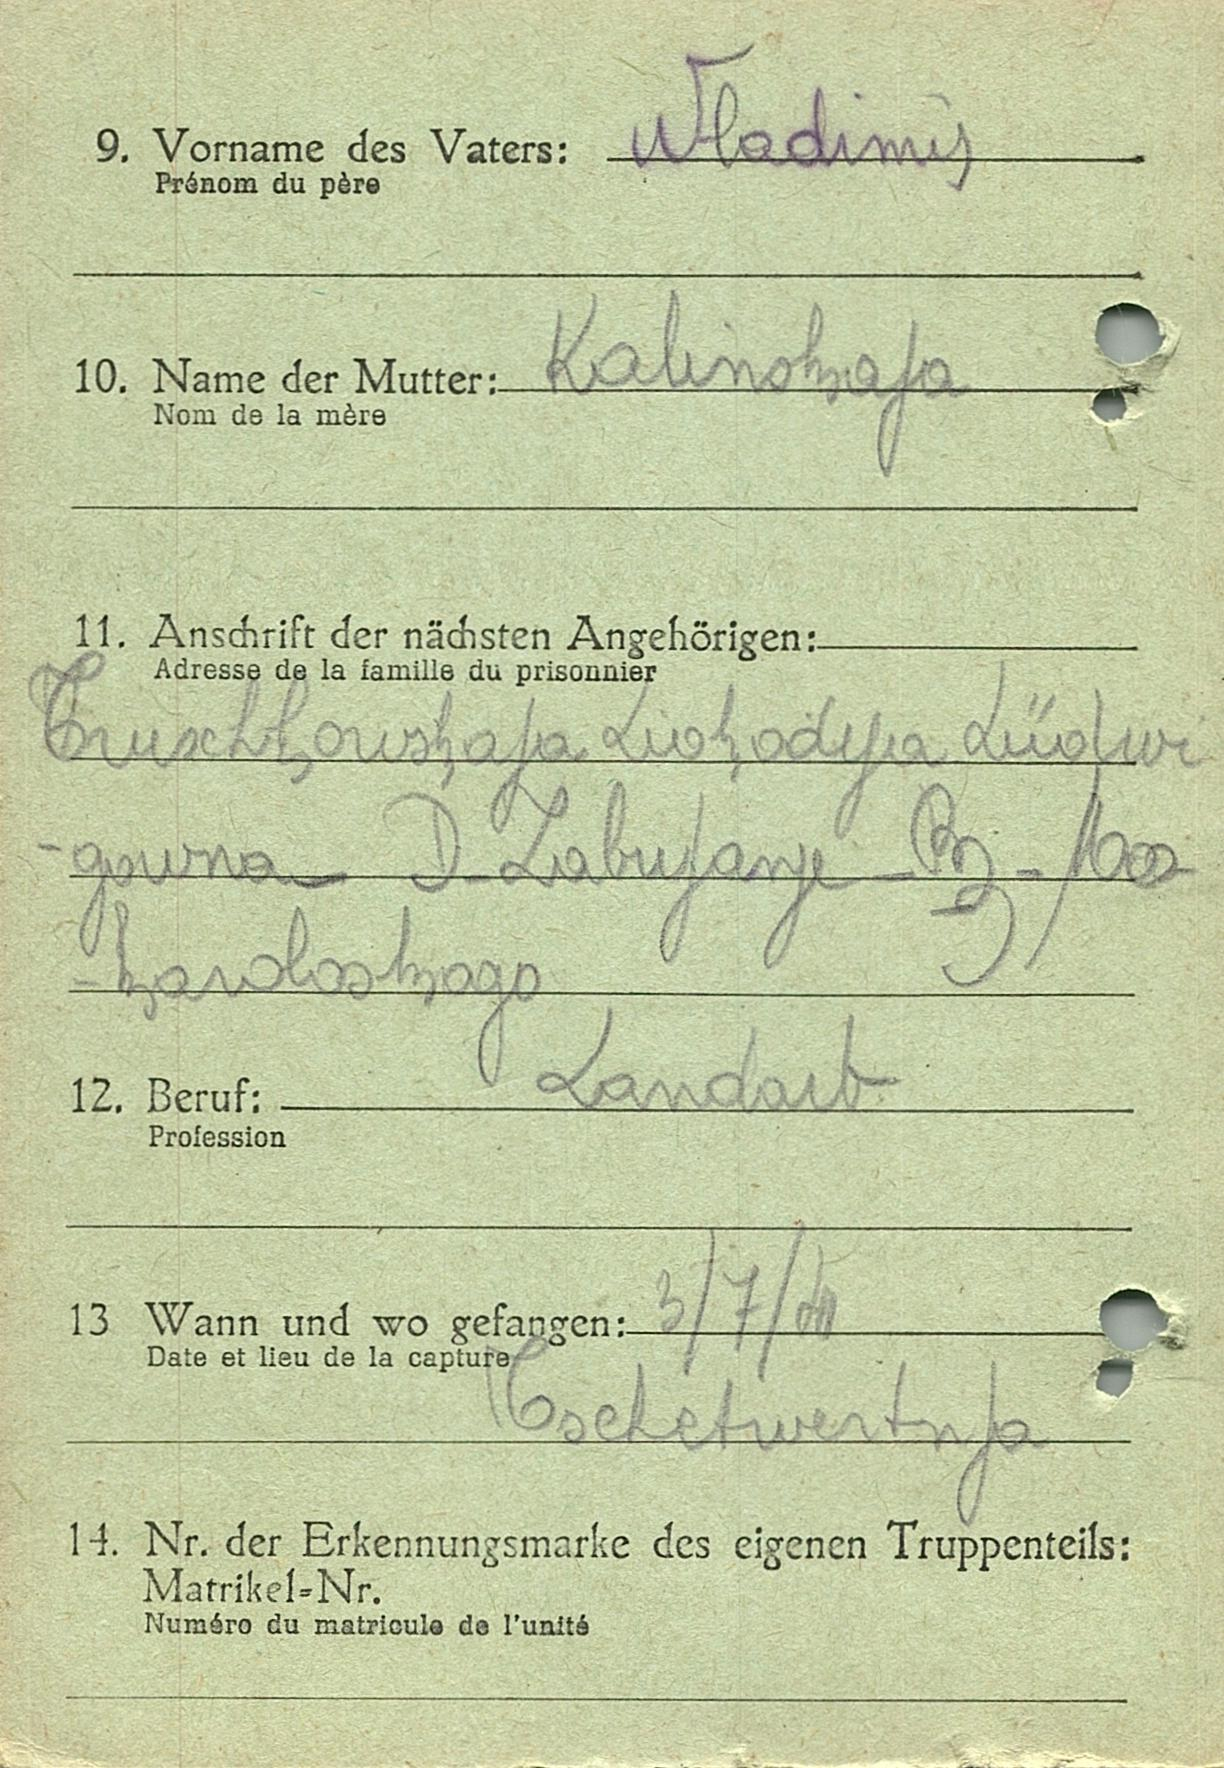 9. Vorname des Vaters: Wladimir
Prénom du père
10. Name der Mutter: Kalinskaja
Nom de la mère
11. Anschrift der nächsten Angehörigen:
Adresse de la famille du prisonnier
Lüdwi
-gowna D-Zabujanje
12. Beruf: Landarb
Profession
13 Wann und wo gefangen: 3/7/
Date et lieu de la capture
Tschetwertnja
14. Nr. der Erkennungsmarke des eigenen Truppenteils:
Matrikel=Nr.
Numéro du matricule de l'unité